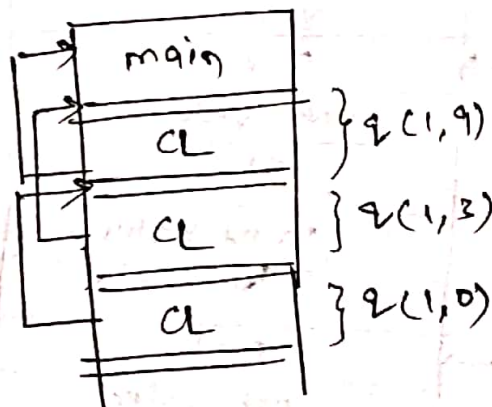 main
CL } q(1,9)
CL } q(1,3)
CL } q(1,0)